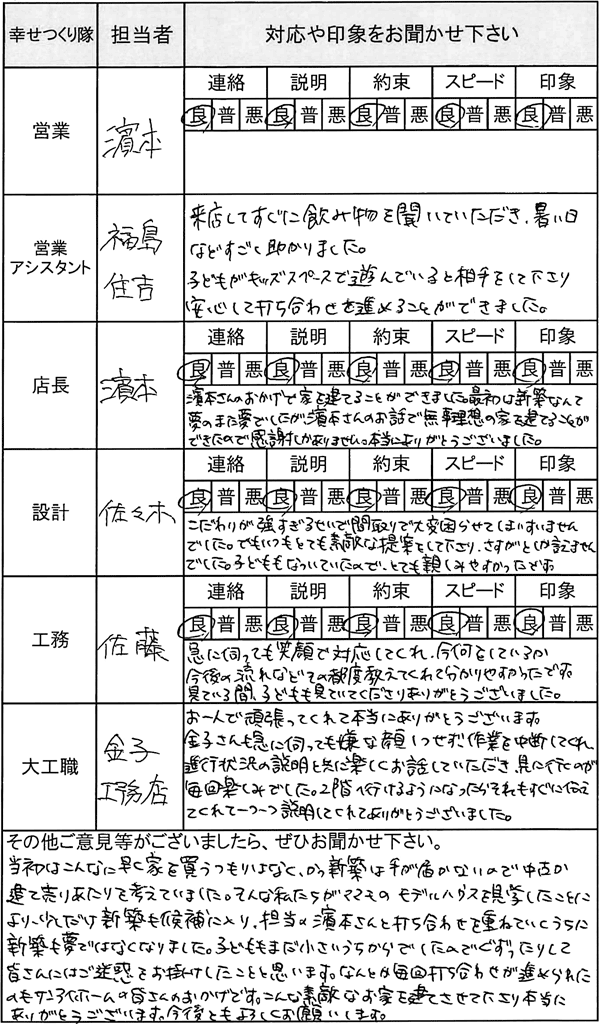 幸せつくり隊 担当者 対応や印象をお聞かせ下さい
営業 濱本
連絡 説明 約束 スピード 印象
良 普 悪 良 普 悪 良 普 悪 良 普 悪 良 普 悪
営業アシスタント
福島
住吉
来店してすぐに飲み物を聞いていただき、暑い日
などすごく助かりました。
子どもがキッズスペースで遊んでいると相手をして下さり
安心して打ち合わせを進めることができました。
店長 濱本
連絡 説明 約束 スピード 印象
良 普 悪 良 普 悪 良 普 悪 良 普 悪 良 普 悪
濱本さんのおかげで家を建てることができました。最初は新築なんて
夢のまた夢でしたが濱本さんのお話で無事理想の家を建てることが
できたので感謝しかありません。本当にありがとうございました。
設計 佐々木
連絡 説明 約束 スピード 印象
良 普 悪 良 普 悪 良 普 悪 良 普 悪 良 普 悪
こだわりが強すぎるせいで間取りで大変困らせてしまいすいません
でした。でもいつもとても素敵な提案をして下さり、さすがとしか言えません
でした。子どももなついていたので、とても親しみやすかったです
工務 佐藤
連絡 説明 約束 スピード 印象
良 普 悪 良 普 悪 良 普 悪 良 普 悪 良 普 悪
急に伺っても笑顔で対応してくれ、今何をしているか
今後の流れなどその都度教えてくれて分かりやすかったです。
見ている間、子どもも見ていてくださりありがとうございました。
大工職
金子
工務店
お一人で頑張ってくれて本当にありがとうございます。
金子さんも急に伺っても嫌な顔1つせず作業を中断してくれ
進行状況の説明と共に楽しくお話していただき、見に行くのが
毎回楽しみでした。2階へ行けるようになったらそれもすぐに伝え
てくれて一つ一つ説明してくれてありがとうございました。
その他ご意見等がございましたら、ぜひお聞かせ下さい。
当初はこんなに早く家を買うつもりはなく、かつ新築は手が届かないので中古か
建て売りあたりを考えていました。そんな私たちがママモのモデルハウスを見学したことに
より、少しだけ新築も候補に入り、担当の濱本さんと打ち合わせを重ねていくうちに
新築も夢ではなくなりました。子どももまだ小さいうちからでしたのでぐずったりして
皆さんにはご迷惑をお掛けしたことと思います。なんとか毎回打ち合わせが進められた
のもサンアイホームの皆さんのおかげです。こんな素敵なお家を建てさせて下さり本当に
ありがとうございます。今後ともよろしくお願いします。